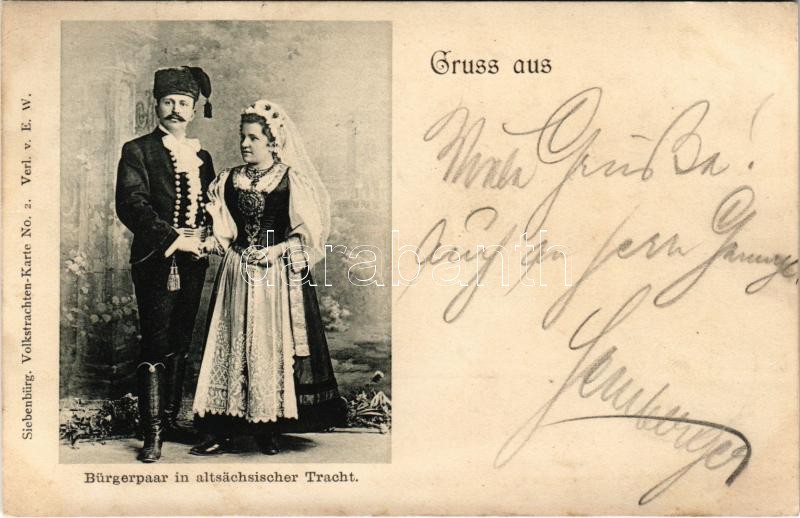 Siebenbürg. Volkstrachten-Karte No. 2. Verl. v. E. W.
Gruss aus
Viele Grüße!
auch an Herrn
Bürgerpaar in altsächsischer Tracht.
darabanth.com